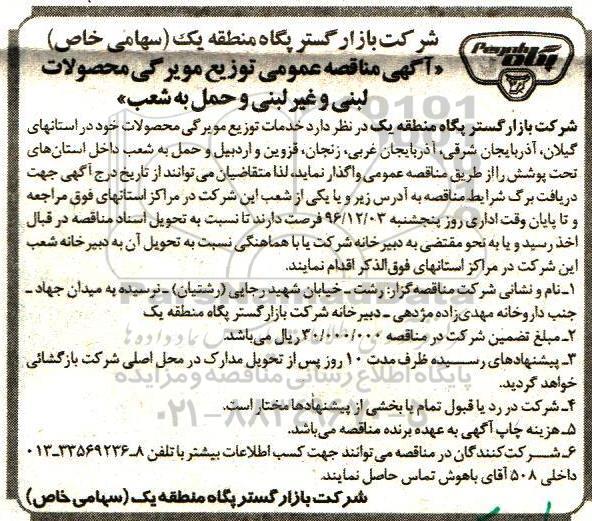 شرکت بازار گستر پگاه منطقه یک (سهامی خاص)
Pegah
پگاه
«آگهی مناقصه عمومی توزیع مویرگی محصولات
لبنی و غیر لبنی و حمل به شعب»
شرکت بازار گستر پگاه منطقه یک در نظر دارد خدمات توزیع مویرگی محصولات خود در استانهای
گیلان، آذربایجان شرقی، آذربایجان غربی، زنجان، قزوین و اردبیل و حمل به شعب داخل استان‌های
تحت پوشش را از طریق مناقصه عمومی واگذار نماید، لذا متقاضیان می‌توانند از تاریخ درج آگهی جهت
دریافت برگ شرایط مناقصه به آدرس زیر و یا یکی از شعب این شرکت در مراکز استانهای فوق مراجعه
و تا پایان وقت اداری روز پنجشنبه ۹۶/۱۲/۰۳ فرصت دارند تا نسبت به تحویل اسناد مناقصه در قبال
اخذ رسید و یا به نحو مقتضی به دبیرخانه شرکت یا با هماهنگی نسبت به تحویل آن به دبیرخانه شعب
این شرکت در مراکز استانهای فوق‌الذکر اقدام نمایند.
۱ـ نام و نشانی شرکت مناقصه‌گزار: رشت ـ خیابان شهید رجایی (رشتیان) ـ نرسیده به میدان جهاد ـ
جنب داروخانه مهدی‌زاده مژدهی ـ دبیرخانه شرکت بازار گستر پگاه منطقه یک
۲ـ مبلغ تضمین شرکت در مناقصه ۳۰/۰۰۰/۰۰۰ ریال می‌باشد.
۳ـ پیشنهادهای رسیده ظرف مدت ۱۰ روز پس از تحویل مدارک در محل اصلی شرکت بازگشائی
خواهد گردید.
۴ـ شرکت در رد یا قبول تمام یا بخشی از پیشنهادها مختار است.
۵ـ هزینه چاپ آگهی به عهده برنده مناقصه می‌باشد.
۶ـ شرکت‌کنندگان در مناقصه می‌توانند جهت کسب اطلاعات بیشتر با تلفن ۸ـ۳۳۵۶۹۲۳۶ـ۰۱۳
داخلی ۵۰۸ آقای باهوش تماس حاصل نمایند.
شرکت بازار گستر پگاه منطقه یک (سهامی خاص)
پایگاه اطلاع رسانی مناقصه و مزایده